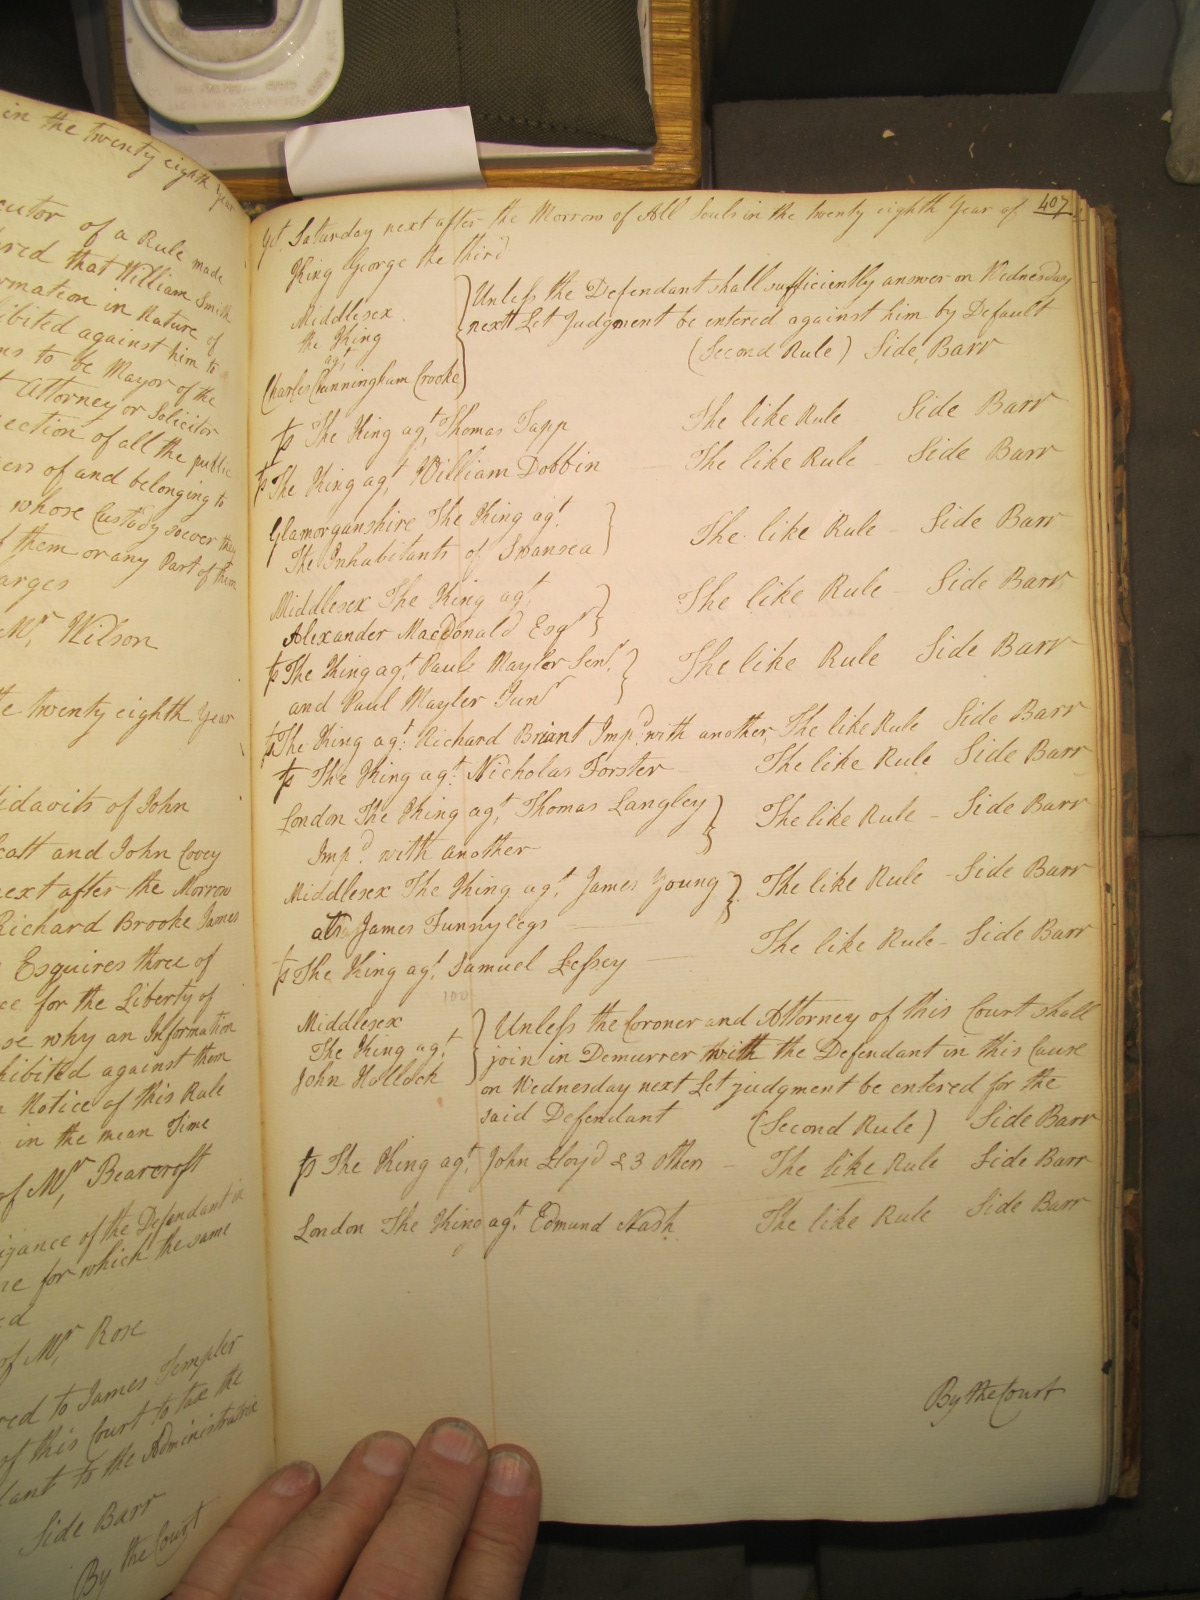 in the twenty eighth Year
cutor of a Rule made
ered that William Smith
ormation in Nature of
ibited against him to
ns to be Mayor of the
Attorney or Solicitor
ection of all the public
ers of and belonging to
whose Custody soever they
f them or any Part of them
arges
Mr. Wilson
e twenty eighth Year
idavits of John
catt and John Covey
next after the Morrow
Richard Brooke James
Esquires three of
ce for the Liberty of
se why an Information
hibited against them
n Notice of this Rule
in the mean Time
of Mr. Bearcroft
igance of the Defendant in
ne for which the same
ed
of Mr. Rose
red to James Templer
of this Court to tax the
dant to the Administratrix
Side Barr
By the Court
Yet Saturday next after the Morrow of All Souls in the twenty eighth Year of 407
King George the third
Middlesex
the King
agt
Charles Cunningham Crooke
Unless the Defendant shall sufficiently answer on Wednesday
next Let Judgment be entered against him by Default
(Second Rule) Side Barr
ſs The King agt. Thomas Tapp The like Rule Side Barr
ſs The King agt. William Dobbin The like Rule - Side Barr
Glamorganshire The King agt.
The Inhabitants of Swansea The like Rule - Side Barr
Middlesex The King agt.
Alexander MacDonald Esqr The like Rule - Side Barr
ſs The King agt. Paul Mayler Senr.
and Paul Mayler Junr The like Rule Side Barr
ſs The King agt. Richard Briant Impd. with another The like Rule Side Barr
ſs The King agt. Nicholas Forster The like Rule Side Barr
London The King agt. Thomas Langley
Impd. with another The like Rule - Side Barr
Middlesex The King agt. James Young
als James Funnylegs The like Rule - Side Barr
ſs The King agt. Samuel Lessey The like Rule - Side Barr
100
Middlesex
The King agt.
John Hollock
Unless the Coroner and Attorney of this Court shall
join in Demurrer with the Defendant in this Cause
on Wednesday next Let judgment be entered for the
said Defendant (Second Rule) Side Barr
ſs The King agt. John Lloyd & 3 others - The like Rule Side Barr
London The King agt. Edmund Nash The like Rule Side Barr
By the Court